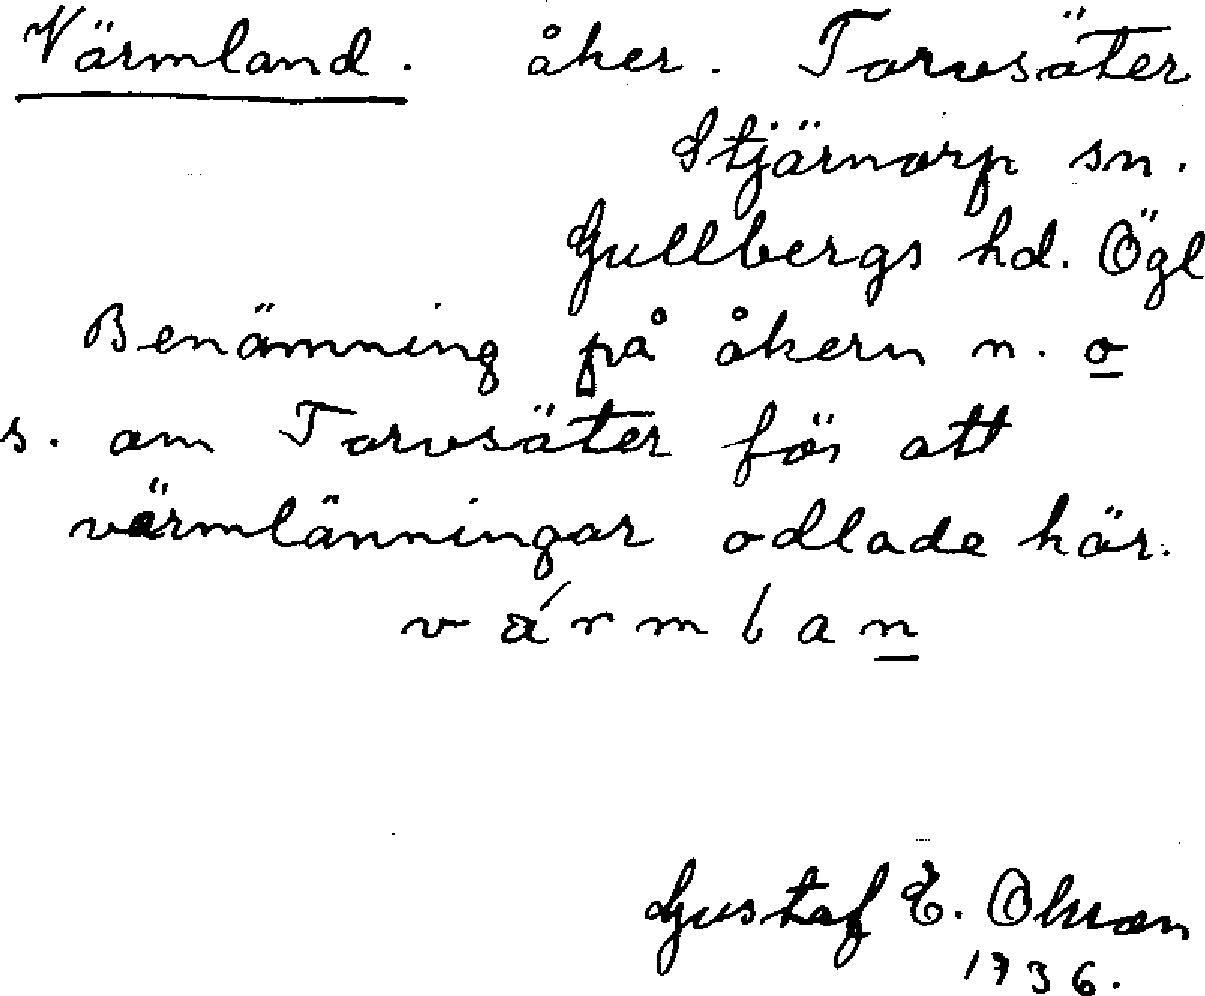 Värmland. åker. Torvsäter
Stjärnorp sn.
Gullbergs hd. Ögl
Benämning på åkern n. o
s. om Torvsäter för att
värmlänningar odlade här.
v ä́ r m l a n
Gustaf E. Olsson
1936.